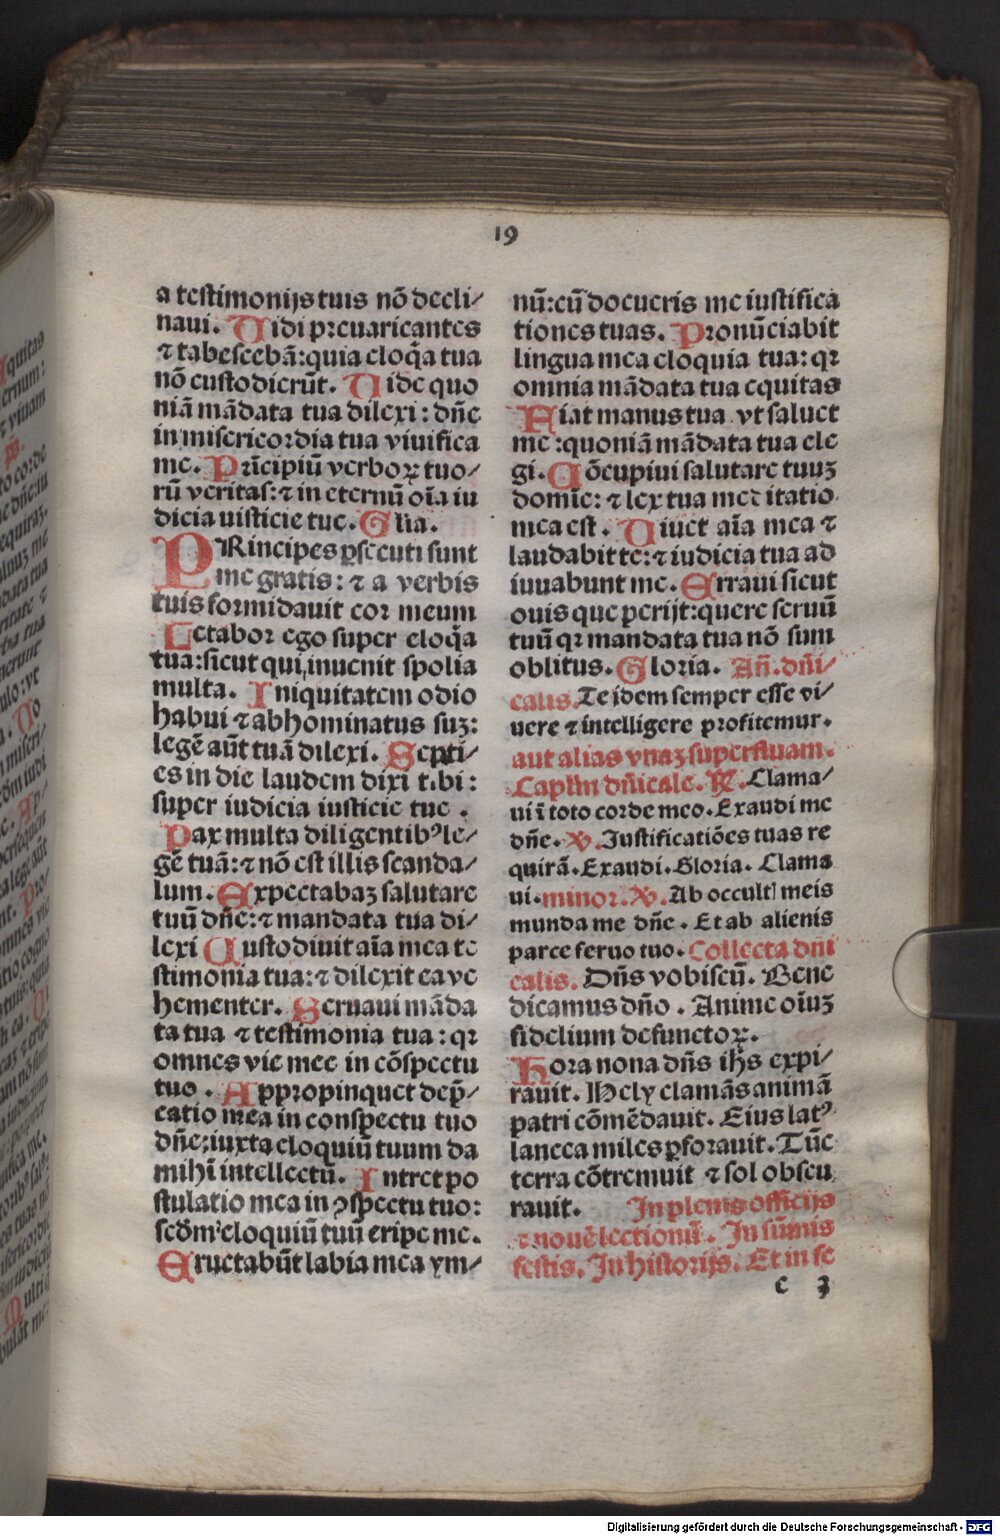 19
a testimonijs tuis nō decli/
naui. Uidi preuaricantes
⁊ tabescebā: quia eloq̄a tua
nō custodierūt. Uide quo
niā mādata tua dilexi: dn̄e
in misericordia tua viuifica
me. Prīcipiū verboꝝ tuo/
rū veritas: ⁊ in eternū oīa iu
dicia iusticie tue. Gl̄ia.
PRincipes ꝑsecuti sunt
me gratis: ⁊ a verbis
tuis formidauit cor meum
Letabor ego super eloq̄a
tua: sicut qui inuenit spolia
multa. Iniquitatem odio
habui ⁊ abhominatus suꝫ:
legē aūt tuā dilexi. Septi/
es in die laudem dixi tibi:
super iudicia iusticie tue.
Pax multa diligentibꝰ le/
gē tuā: ⁊ nō est illis scanda/
lum. Expectabaꝫ salutare
tuū dn̄e: ⁊ mandata tua di/
lexi Custodiuit aīa mea te
stimonia tua: ⁊ dilexit ea ve
hementer. Seruaui māda
ta tua ⁊ testimonia tua: qꝛ
omnes vie mee in cōspectu
tuo. Appropinquet dep̄/
catio mea in conspectu tuo
dn̄e: iuxta eloquiū tuum da
mihi intellectū. Intret po
stulatio mea in ꝯspectu tuo:
scd̄m eloquiū tuū eripe me.
Eructabūt labia mea ym/
nū: cū docueris me iustifica
tiones tuas. Pronūciabit
lingua mea eloquia tua: qꝛ
omnia mādata tua equitas
Fiat manus tua vt saluet
me: quoniā mādata tua ele
gi. Cōcupiui salutare tuuꝫ
domīe: ⁊ lex tua meditatio
mea est. Uiuet aīa mea ⁊
laudabit te: ⁊ iudicia tua ad
iuuabunt me. Erraui sicut
ouis que perijt: quere seruū
tuū qꝛ mandata tua nō sum
oblitus. Gloria. An̄. dn̄i/
calis. Te idem semper esse vi/
uere ⁊ intelligere profitemur.
aut alias vnaꝫ superfluam.
Capl̄m dn̄icale. ℟. Clama/
ui ī toto corde meo. Exaudi me
dn̄e. ℣. Justificatiōes tuas re
quirā. Exaudi. Gloria. Clama
ui. minor. ℣. Ab occult meis
munda me dn̄e. Et ab alienis
parce seruo tuo. Collecta dn̄i
calis. Dn̄s vobiscū. Bene
dicamus dn̄o. Anime oīuꝫ
fidelium defunctoꝝ.
Hora nona dn̄s ih̄s expi/
rauit. Hely clamās animā
patri cōmēdauit. Eius latꝰ
lancea miles ꝑforauit. Tūc
terra cōtremuit ⁊ sol obscu
rauit. In plenis officijs
⁊ nouē lectionū. In sūmis
festis. In historijs. Et in fe
c 3
Digitalisierung gefördert durch die Deutsche Forschungsgemeinschaft - DFG